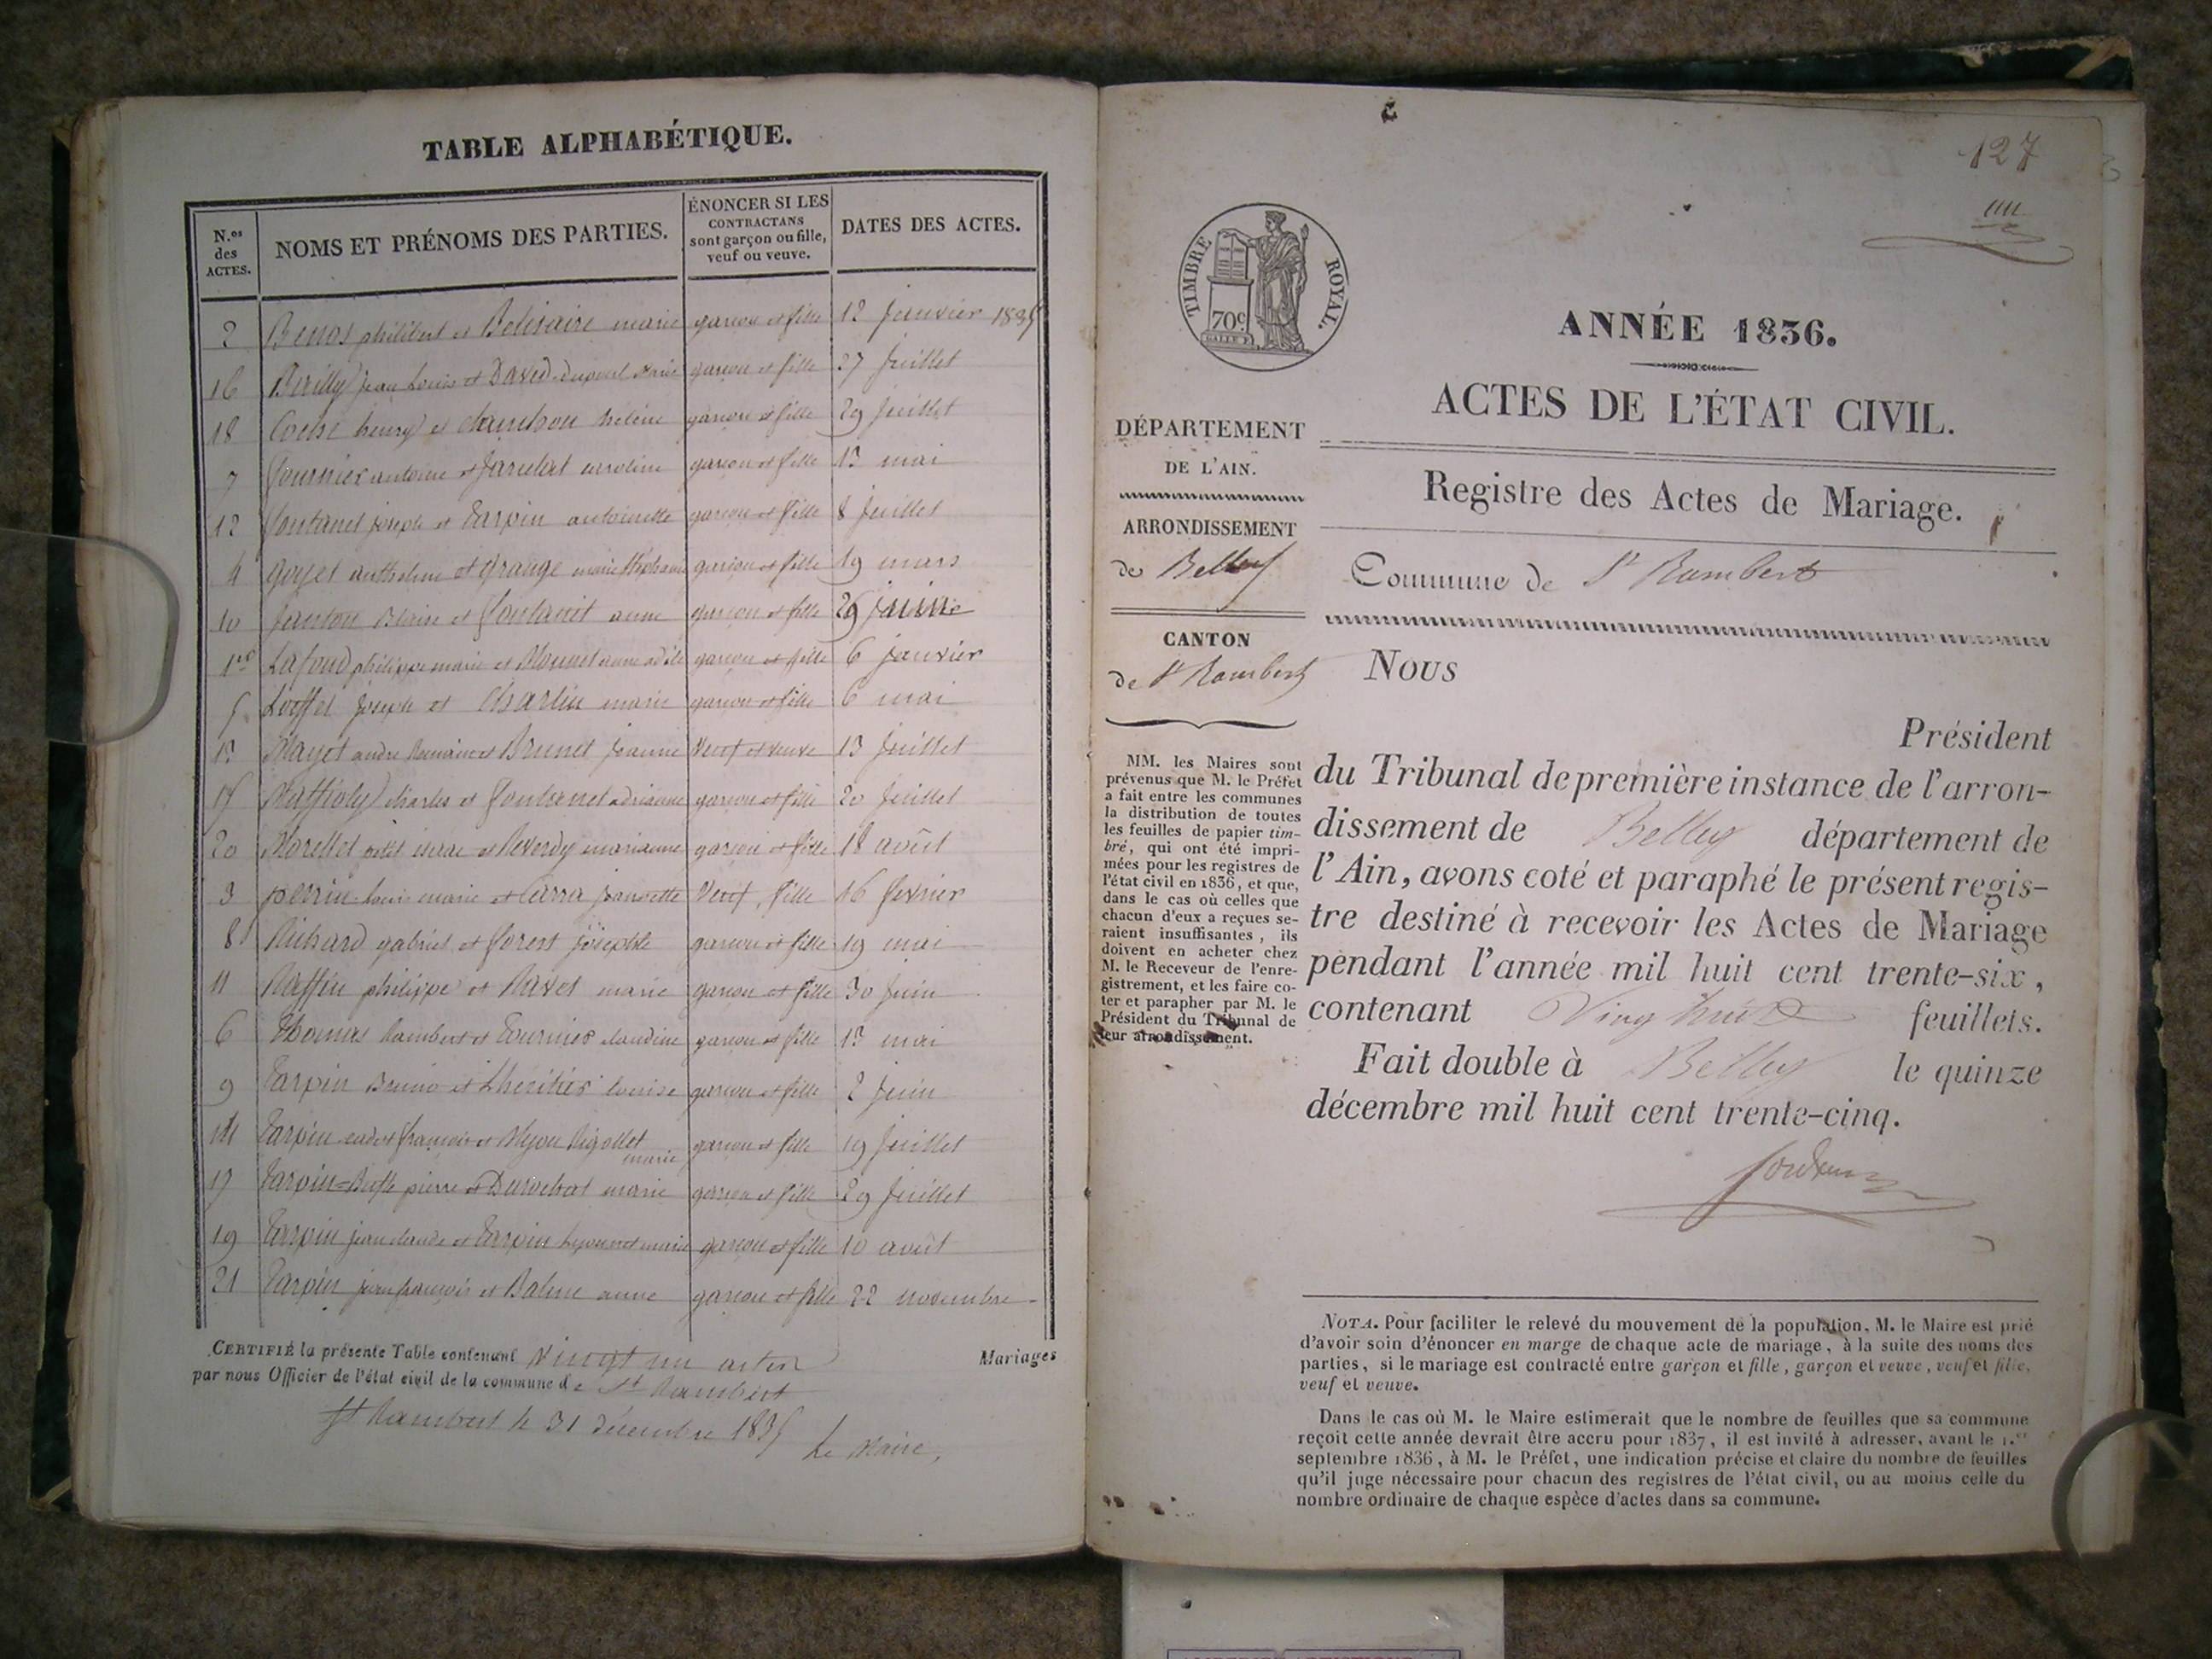 TABLE ALPHABÉTIQUE.
N.os des ACTES.
NOMS ET PRÉNOMS DES PARTIES.
ÉNONCER SI LES CONTRACTANS sont garçon ou fille, veuf ou veuve.
DATES DES ACTES.
2 philibert et Belisaire marie garcon et fille 12 Janvier 1835
16 jean Louis et David garcon et fille 27 Juillet
18 henry et hélène garcon et fille 29 Juillet
7 antoine et caroline garcon et fille 13 mai
12 fontanel joseph et Tarpin antoinette garcon et fille 8 Juillet
4 Goyet anthelme et Grange marie garcon et fille 19 mars
10 et anne garcon et fille 29
1er Lafond philippe marie et garcon et fille 6 janvier
5 joseph et Charlin marie garcon et fille 6 mai
13 andre et Brunet Veuf et veuve 13 Juillet
15 charles et garcon et fille 20 Juillet
20 Morellet et Reverdy marianne garcon et fille 18 août
3 perrin louis marie et Carra Veuf, fille 16 fevrier
8 Richard gabriel et forest garcon et fille 19 mai
11 Raffin philippe et Ravet marie garcon et fille 30 Juin
6 Thomas Rambert et claudine garcon et fille 13 mai
9 Tarpin Bruno et Lheritier louise garcon et fille 2 Juin
14 Tarpin cadet françois et Rigollet marie garcon et fille 19 Juillet
17 Tarpin pierre et marie garcon et fille 29 Juillet
19 Tarpin jean claude et Tarpin marie garcon et fille 10 août
21 Tarpin jean françois et Balme anne garcon et fille 22 novembre
CERTIFIÉ la présente Table contenant Vingt un actes Mariages
par nous Officier de l'état civil de la commune de St Rambert
St Rambert le 31 Décembre 1835
Le Maire,
127
TIMBRE ROYAL.
70c.
ANNÉE 1836.
ACTES DE L'ÉTAT CIVIL.
DÉPARTEMENT
DE L'AIN.
Registre des Actes de Mariage.
ARRONDISSEMENT
de Belley
Commune de St Rambert
CANTON
de St Rambert
Nous
Président
du Tribunal de première instance de l'arron-
dissement de Belley département de
l'Ain, avons coté et paraphé le présent regis-
tre destiné à recevoir les Actes de Mariage
pendant l'année mil huit cent trente-six,
contenant Ving huit feuillets.
Fait double à Belley le quinze
décembre mil huit cent trente-cinq.
MM. les Maires sont
prévenus que M. le Préfet
a fait entre les communes
la distribution de toutes
les feuilles de papier tim-
bré, qui ont été impri-
mées pour les registres de
l'état civil en 1836, et que,
dans le cas où celles que
chacun d'eux a reçues se-
raient insuffisantes, ils
doivent en acheter chez
M. le Receveur de l'enre-
gistrement, et les faire co-
ter et parapher par M. le
Président du Tribunal de
leur arrondissement.
NOTA. Pour faciliter le relevé du mouvement de la population, M. le Maire est prié
d'avoir soin d'énoncer en marge de chaque acte de mariage, à la suite des noms des
parties, si le mariage est contracté entre garçon et fille, garçon et veuve, veuf et fille,
veuf et veuve.
Dans le cas où M. le Maire estimerait que le nombre de feuilles que sa commune
reçoit cette année devrait être accru pour 1837, il est invité à adresser, avant le 1.er
septembre 1836, à M. le Préfet, une indication précise et claire du nombre de feuilles
qu'il juge nécessaire pour chacun des registres de l'état civil, ou au moins celle du
nombre ordinaire de chaque espèce d'actes dans sa commune.